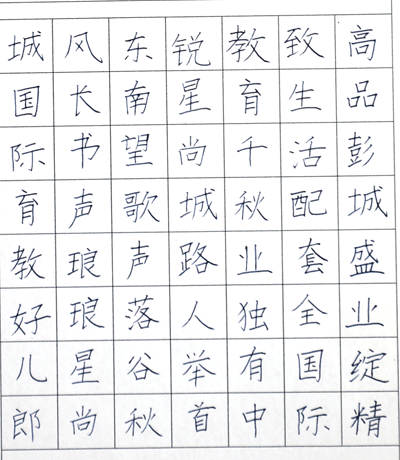 高品彭城盛业绽精
致生活配套全国际
教育千秋业独有中
锐星尚城路人举首
东南望歌声落谷秋
风长书声琅琅星尚
城国际育教好儿郎